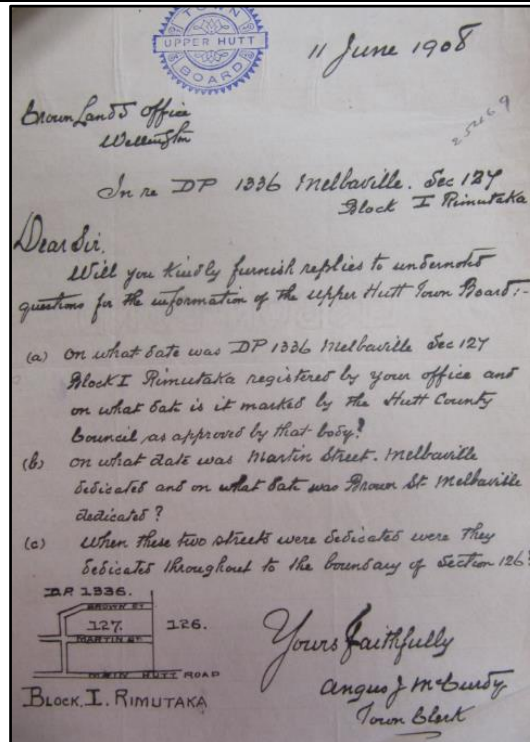 TOWN
UPPER HUTT
BOARD
11 June 1908
25469
Crown Lands Office
Wellington
In re DP 1336 Melbaville. Sec 127
Block I Rimutaka
Dear Sir,
Will you kindly furnish replies to undernoted
questions for the information of the Upper Hutt Town Board:-
(a) On what date was DP 1336 Melbaville Sec 127
Block I Rimutaka registered by your office and
on what date is it marked by the Hutt County
Council as approved by that body?
(b) On what date was Martin Street. Melbaville
dedicated and on what date was Brown St. Melbaville
dedicated?
(c) When these two streets were dedicated were they
dedicated throughout to the boundary of Section 126?
D.P. 1336.
BROWN ST
127. 126.
MARTIN ST.
MAIN HUTT ROAD
BLOCK. I. RIMUTAKA
Yours faithfully
Angus J McCurdy
Town Clerk